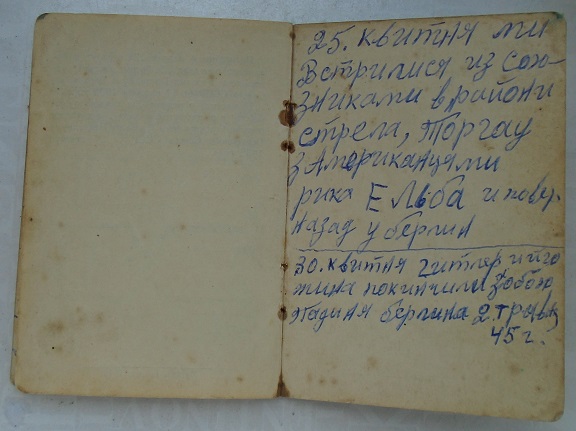 25. квитня ми
Встрилися из Сою-
зниками в районі
стрела, Торгау
з Американцями
рика Ельба и пове-
назад у берлин
30. квитня гитлер и иго
жина покинчили з собою
падиня берлина 2. травя
45 г.